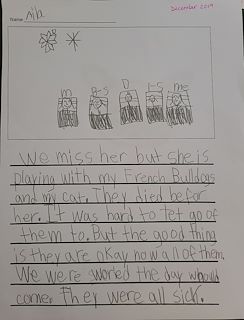 December 2019
Name Aila
m B-S D L-S me
We miss her but she is
playing with my French Bulldogs
and my cat. They died befor
her. It was hard to let go of
them to. But the good thing
is they are okay now all of them.
We were woried the day whould
come. They were all sick.